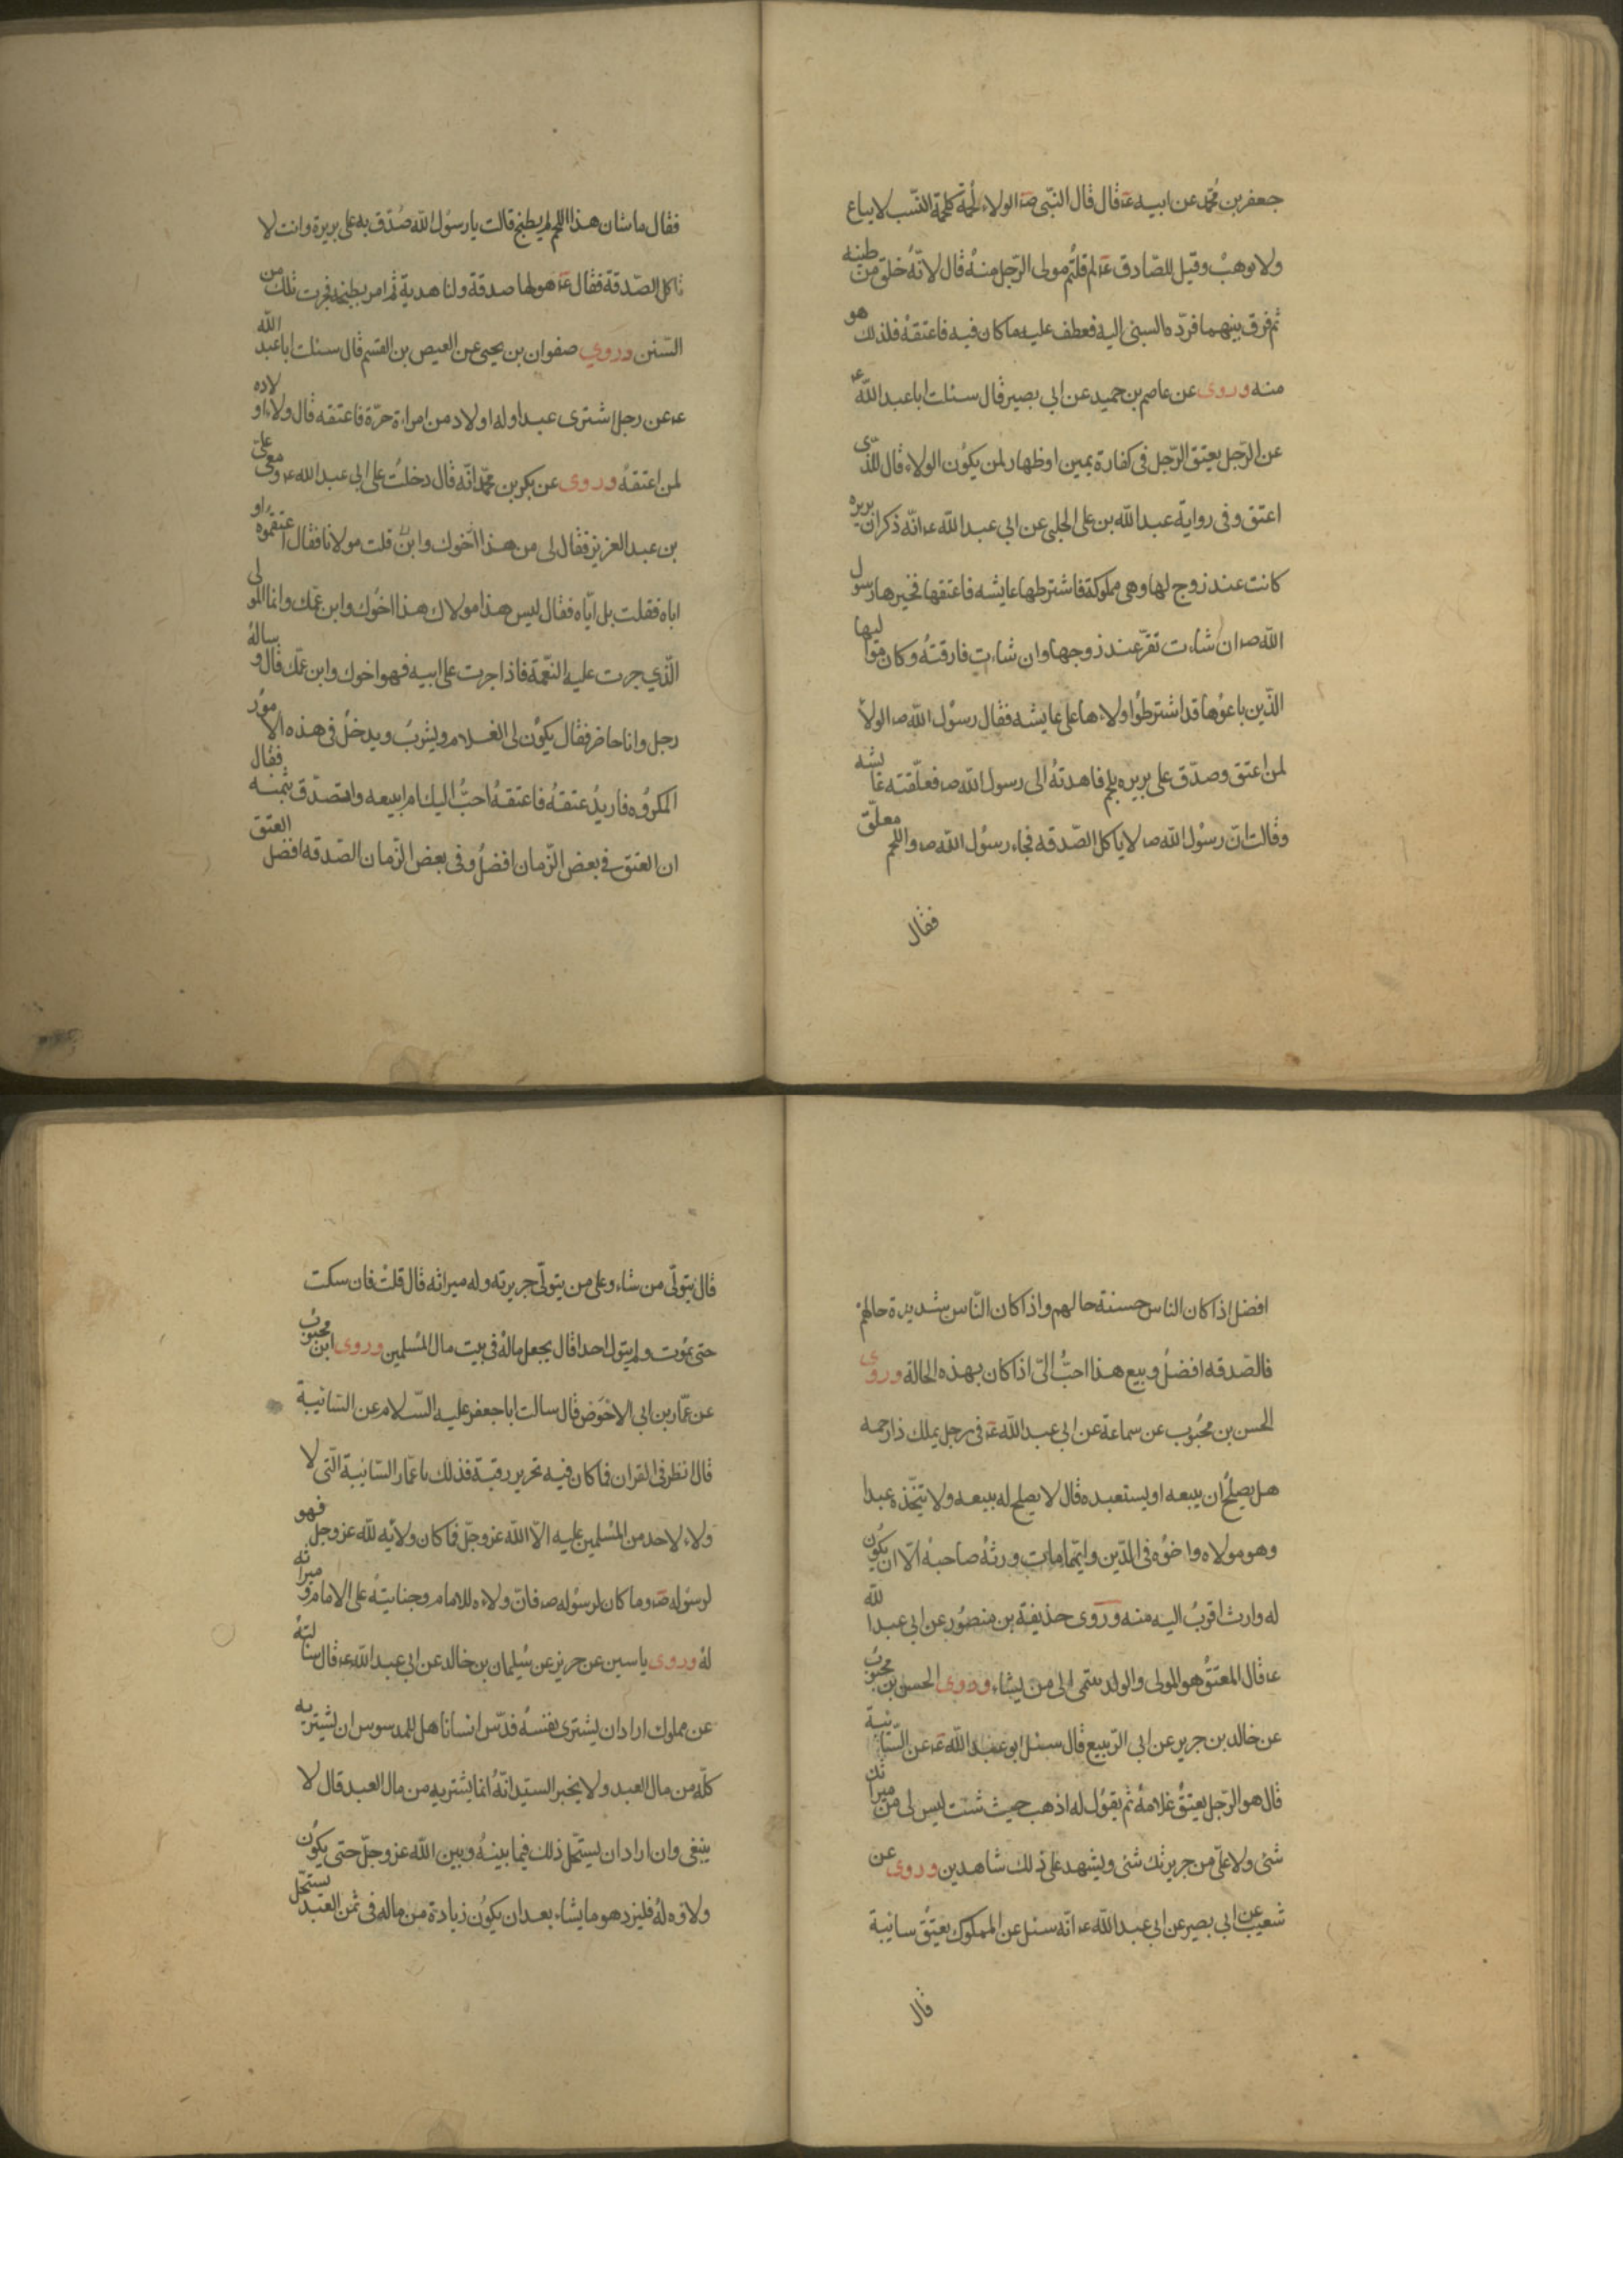 جعفر بن محمد عن ابيه عه قال قال النبي صه الولاء لحمة كلحمة النسب لا يباع
ولا يوهب وقيل للصادق عه لم قلتم مولى الرجل منه قال لانه خلق من طينه
ثم فرق بينهما فرده السبى اليه فعطف عليه ما كان فيه فاعتقه فلذلك هو
منه وروى عن عاصم بن حميد عن ابي بصير قال سئلت ابا عبد الله عه
عن الرجل يعتق الرجل في كفارة يمين او ظهار لمن يكون الولاء قال للذى
اعتق وفى رواية عبد الله بن على الحلبى عن ابي عبد الله عه انه ذكر ان بريره
كانت عند زوج لها وهى مملوكة فاشترطها عايشه فاعتقها فخيرها رسول
الله صه ان شاءت تقر عند زوجها وان شاءت فارقته وكان مواليها
الذين باعوها قد اشترطوا ولاءها على عايشه فقال رسول الله صه الولا
لمن اعتق وصدق على بريره بلحم فاهدته الى رسول الله صه فعلقته عايشه
وقالت ان رسول الله صه لا ياكل الصدقه فجاء رسول الله صه واللحم معلق
فقال
فقال ما شان هذا اللحم لم يطبخ قالت يا رسول الله صدق به على بريرة وانت لا
تاكل الصدقة فقال عه هو لها صدقة ولنا هدية ثم امر بطبخه فجرت ثلث من
السنن وروى صفوان بن يحيى عن العيص بن القسم قال سئلت ابا عبد الله
عه عن رجل اشترى عبدا وله اولاد من امراة حرة فاعتقه قال ولاء اولاده
لمن اعتقه وروى عن بكر بن محمد انه قال دخلت على ابي عبد الله عه ومعى على
بن عبد العزيز فقال لى من هذا قلت مولانا فقال اعتقتموه او
اباه فقلت بل اياه فقال ليس هذا مولاك هذا اخوك وابن عمك وانما المولى
الذي جرت عليه النعمة فاذا جرت على ابيه فهو اخوك وابن عمك قال وساله
رجل وانا حاضر فقال يكون لى الغلام ويشرب ويدخل في هذه الامور
المكروه فاريد عتقه فاعتقه احب اليك ام ابيعه واتصدق بثمنه فقال
ان العتق في بعض الزمان افضل وفى بعض الزمان الصدقه افضل العتق
افضل اذا كان الناس حسنة حالهم واذا كان الناس شديدة حالهم
فالصدقه افضل وبيع هذا احب الى اذا كان بهذه الحالة وروى
الحسن بن محبوب عن سماعة عن ابي عبد الله عه فى رجل يملك ذا رحمه
هل يصلح ان يبيعه او يستعبده قال لا يصلح له بيعه ولا يتخذه عبدا
وهو مولاه واخوه فى الدين وايهما مات ورثه صاحبه الا ان يكون
له وارث اقرب اليه منه وروى حذيفة بن منصور عن ابي عبد الله
عه قال المعتق هو المولى والولد ينتمى الى من يشاء وروى الحسن بن محبوب
عن خالد بن جرير عن ابي الربيع قال سئل ابو عبد الله عه عن السائبة
قال هو الرجل يعتق غلامه ثم يقول له اذهب حيث شئت ليس لى من ميراثك
شئ ولا على من جريرتك شئ ويشهد على ذلك شاهدين وروى عن
شعيب عن ابي بصير عن ابي عبد الله عه انه سئل عن المملوك يعتق سائبة
قال
قال يتولى من شاء وعلى من يتولى جريرته وله ميراثه قال قلت فان سكت
حتى يموت ولم يتول احدا قال يجعل ماله فى بيت مال المسلمين وروى ابن محبوب
عن عمار بن ابي الاحوص قال سالت ابا جعفر عليه السلام عن السائبة
قال انظر فى القران فما كان فيه تحرير رقبة فذلك يا عمار السائبة التى لا
ولاء لاحد من المسلمين عليه الا الله عز وجل فما كان ولائه لله عز وجل فهو
لرسوله صه وما كان لرسوله صه فان ولاءه للامام وجنايته على الامام وميراثه
له وروى ياسين عن حريز عن سليمان بن خالد عن ابي عبد الله عه قال سالته
عن مملوك اراد ان يشترى نفسه فدس انسانا هل للمدسوس ان يشتريه
كله من مال العبد ولا يخبر السيد انه انما يشتريه من مال العبد قال لا
ينبغى وان اراد ان يستحل ذلك فيما بينه وبين الله عز وجل حتى يكون
ولاؤه له فليزد هو ما يشاء بعد ان يكون زيادة من ماله فى ثمن العبد يستحل